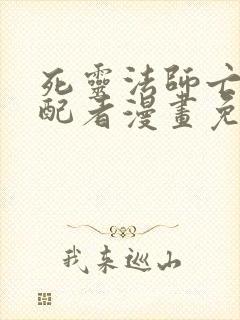 死靈法師亡
配者漫畫免
我来巡山